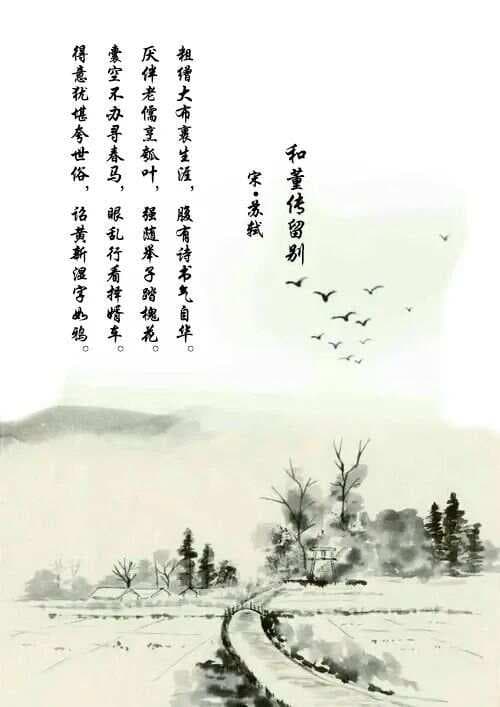 和董传留别
宋•苏轼
粗缯大布裹生涯，腹有诗书气自华。
厌伴老儒烹瓠叶，强随举子踏槐花。
囊空不办寻春马，眼乱行看择婿车。
得意犹堪夸世俗，诏黄新湿字如鸦。